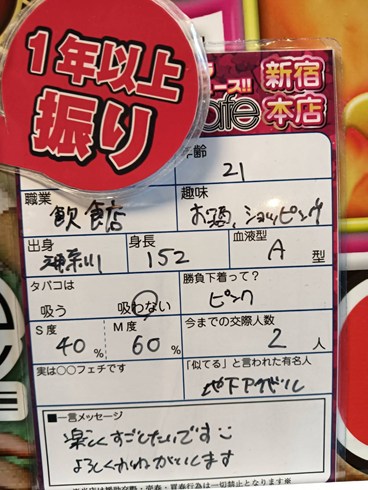 1年以上
振り
ース!!
新宿
afe
本店
年齢
21
職業
飲食店
趣味
お酒、ショッピング
出身
神奈川
身長
152
血液型
A 型
タバコは
吸う 吸わない
勝負下着って?
ピンク
S度
40%
M度
60%
今までの交際人数
2人
実は○○フェチです
「似てる」と言われた有名人
地下アイドル
■一言メッセージ
楽しくすごしたいです
よろしくおねがいします
買春行為は一切禁止となります※